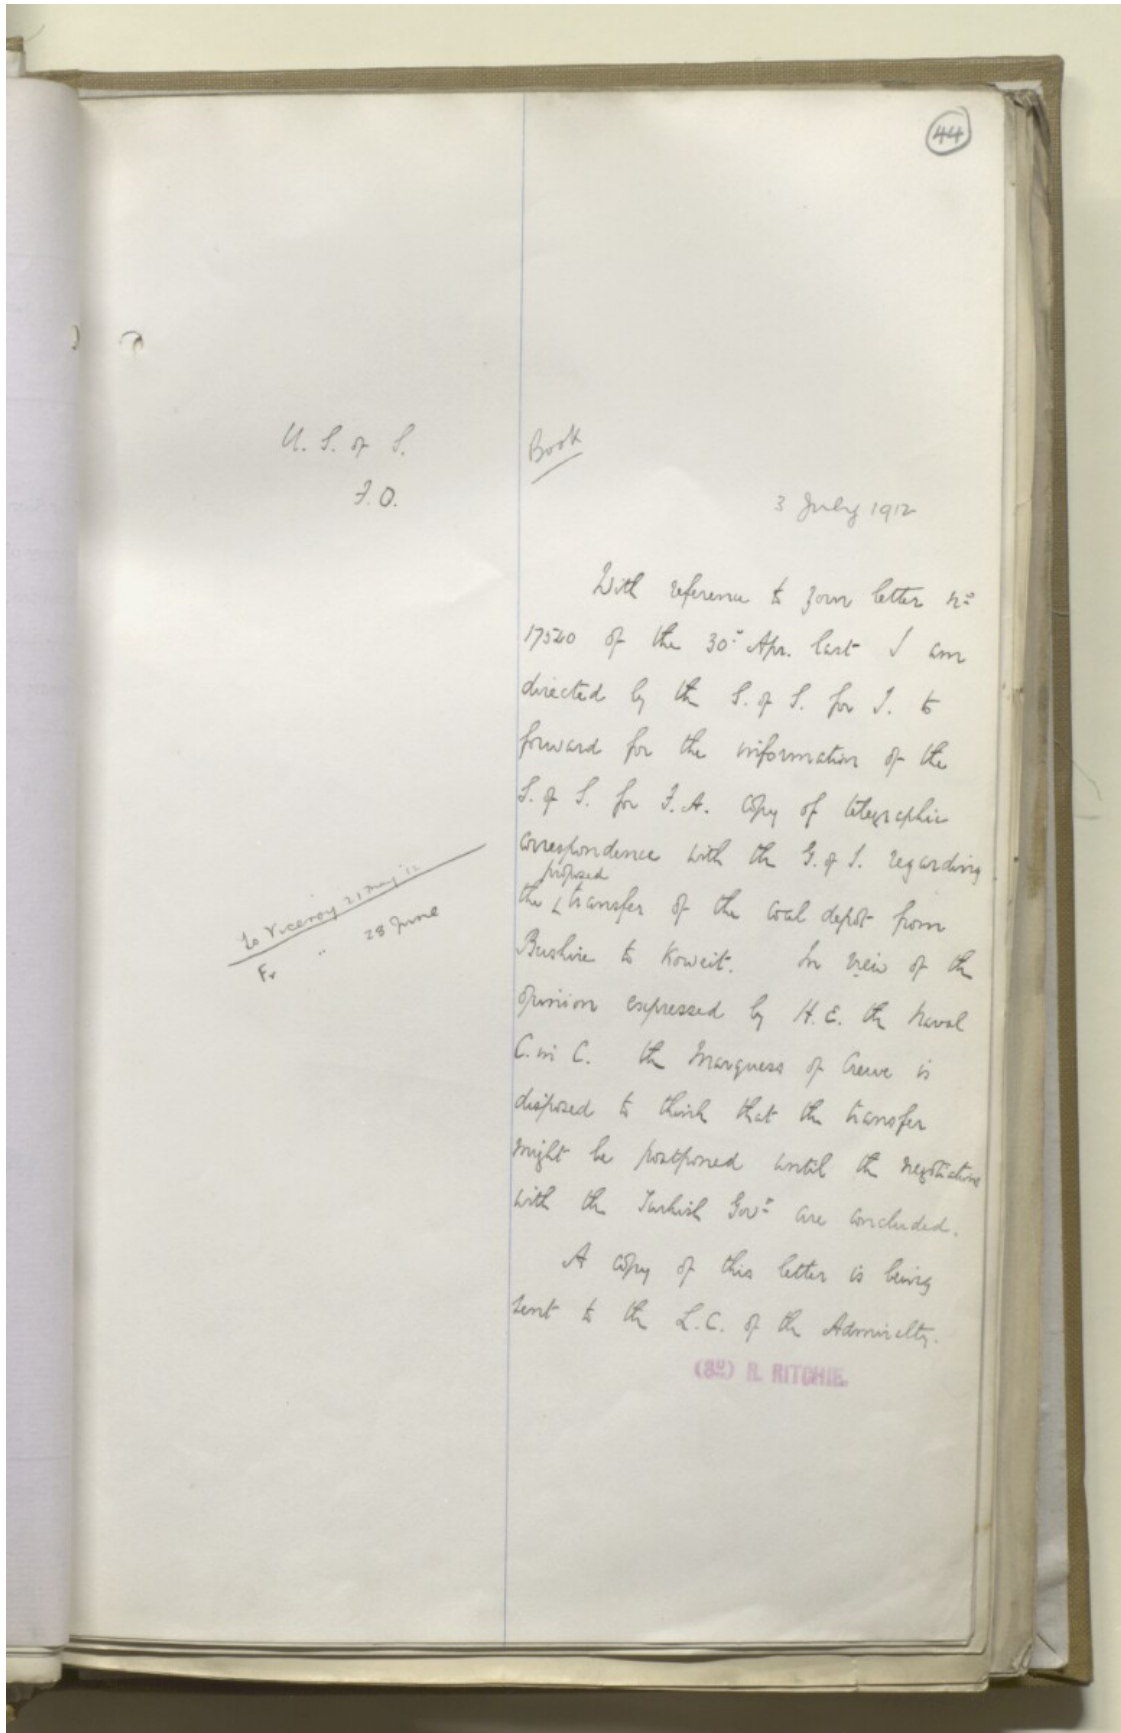 44
U. S. of S.
F.O.
Book
3 July 1912
With reference to your letter No
17520 of the 30th Apr. last I am
directed by the S. of S. for I. to
forward for the information of the
S. of S. for F.A. copy of telegraphic
correspondence with the G. of I. regarding
the proposed transfer of the coal depôt from
Bushire to Koweit. In view of the
opinion expressed by H.E. the Naval
C. in C. the Marquess of Crewe is
disposed to think that the transfer
might be postponed until the negotiations
with the Turkish Govt are concluded.
A copy of this letter is being
sent to the L.C. of the Admiralty.
(Sd) R. RITCHIE.
To Viceroy 21 May '12
Fr " 28 June